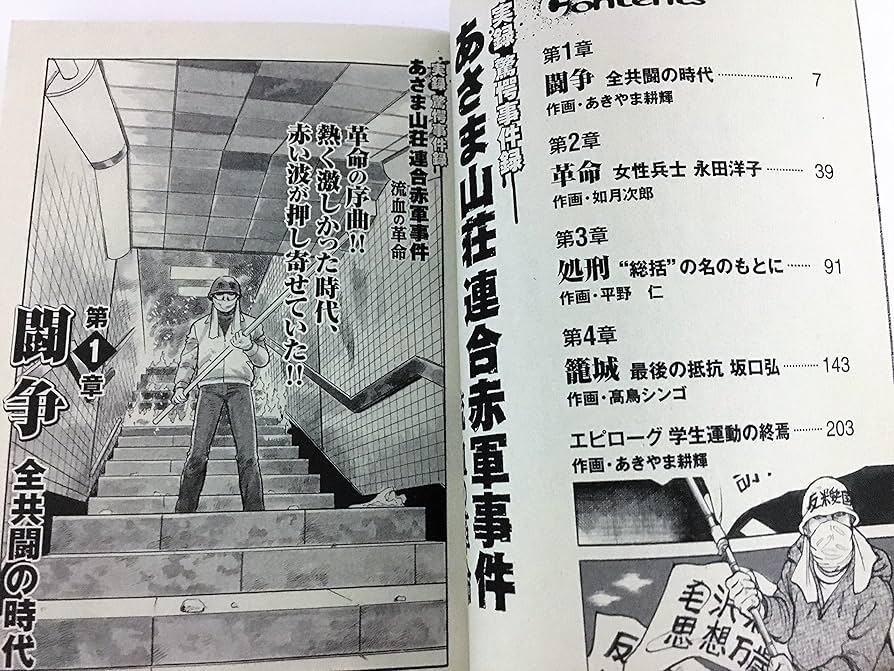 Contents
実録 驚愕事件録
あさま山荘 連合赤軍事件
第1章
闘争 全共闘の時代 ……………… 7
作画・あきやま耕輝
第2章
革命 女性兵士 永田洋子 ……… 39
作画・如月次郎
第3章
処刑 “総括”の名のもとに …… 91
作画・平野 仁
第4章
籠城 最後の抵抗 坂口弘 …… 143
作画・高鳥シンゴ
エピローグ 学生運動の終焉 ……… 203
作画・あきやま耕輝
反米愛国
毛沢東
思想万歳
反
実録 驚愕事件録
あさま山荘 連合赤軍事件
流血の革命
革命の序曲!!
熱く激しかった時代、
赤い波が押し寄せていた!!
第1章
闘争 全共闘の時代